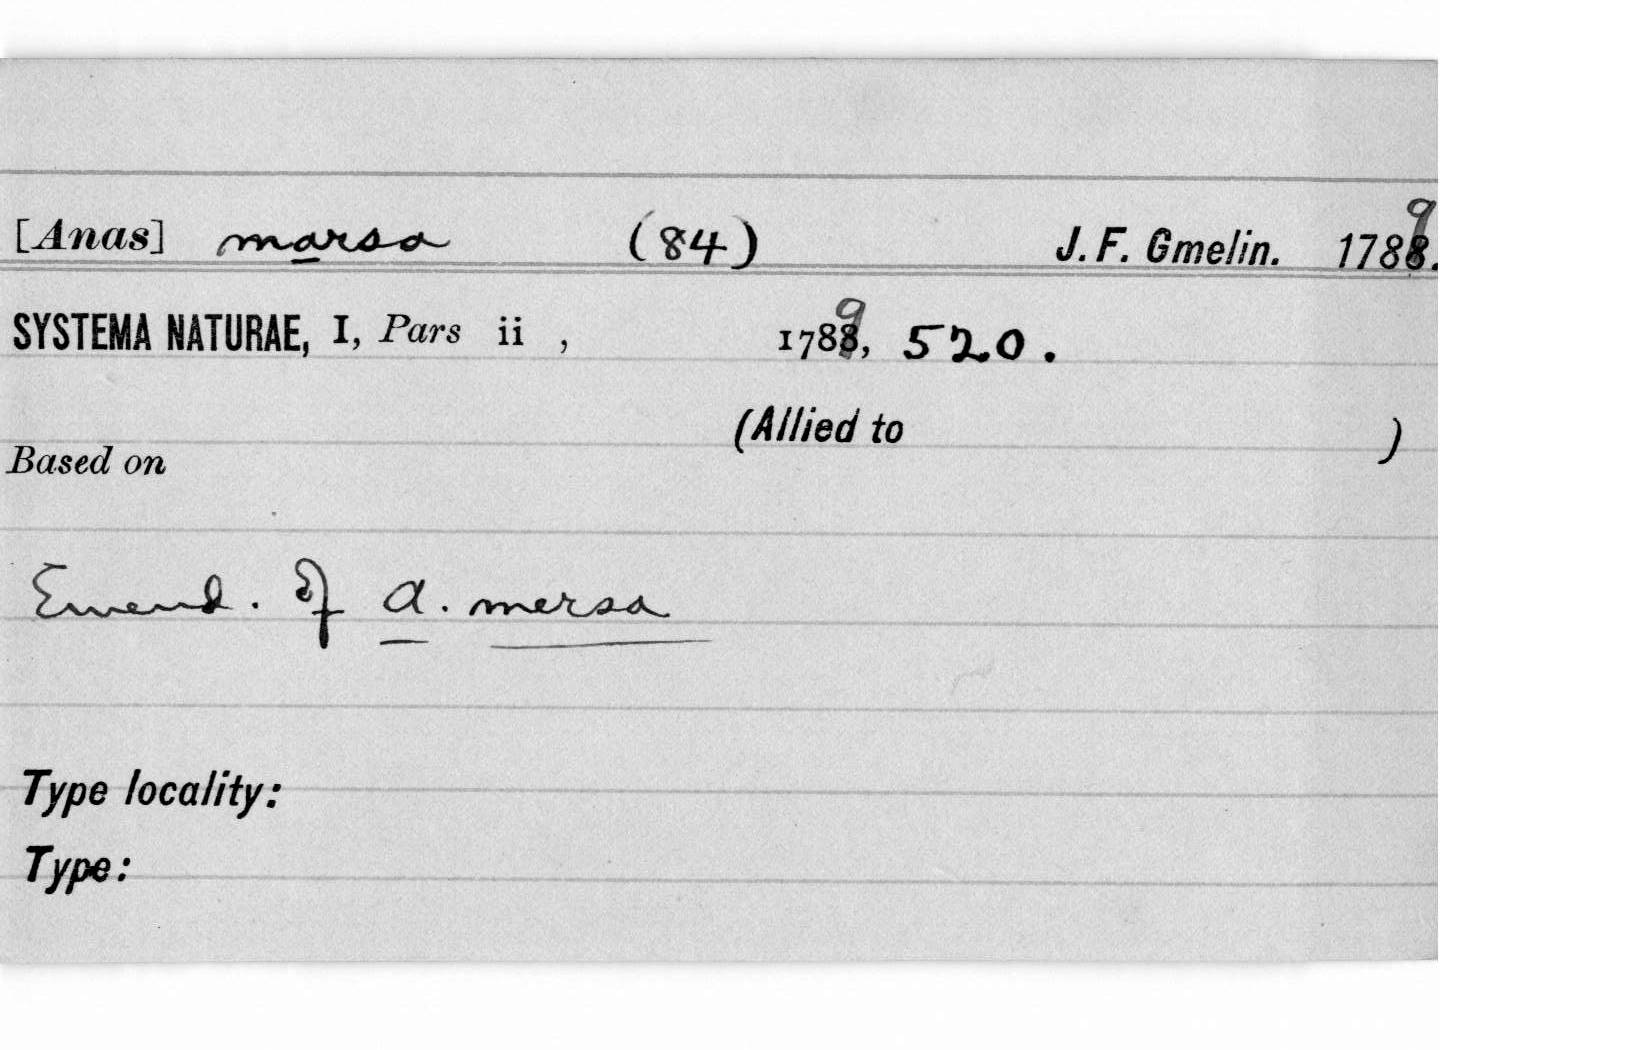 [Anas] marsa (84) J. F. Gmelin. 1789.
SYSTEMA NATURAE, I, Pars ii , 1789, 520.
(Allied to )
Based on
Emend. of A. mersa
Type locality:
Type: